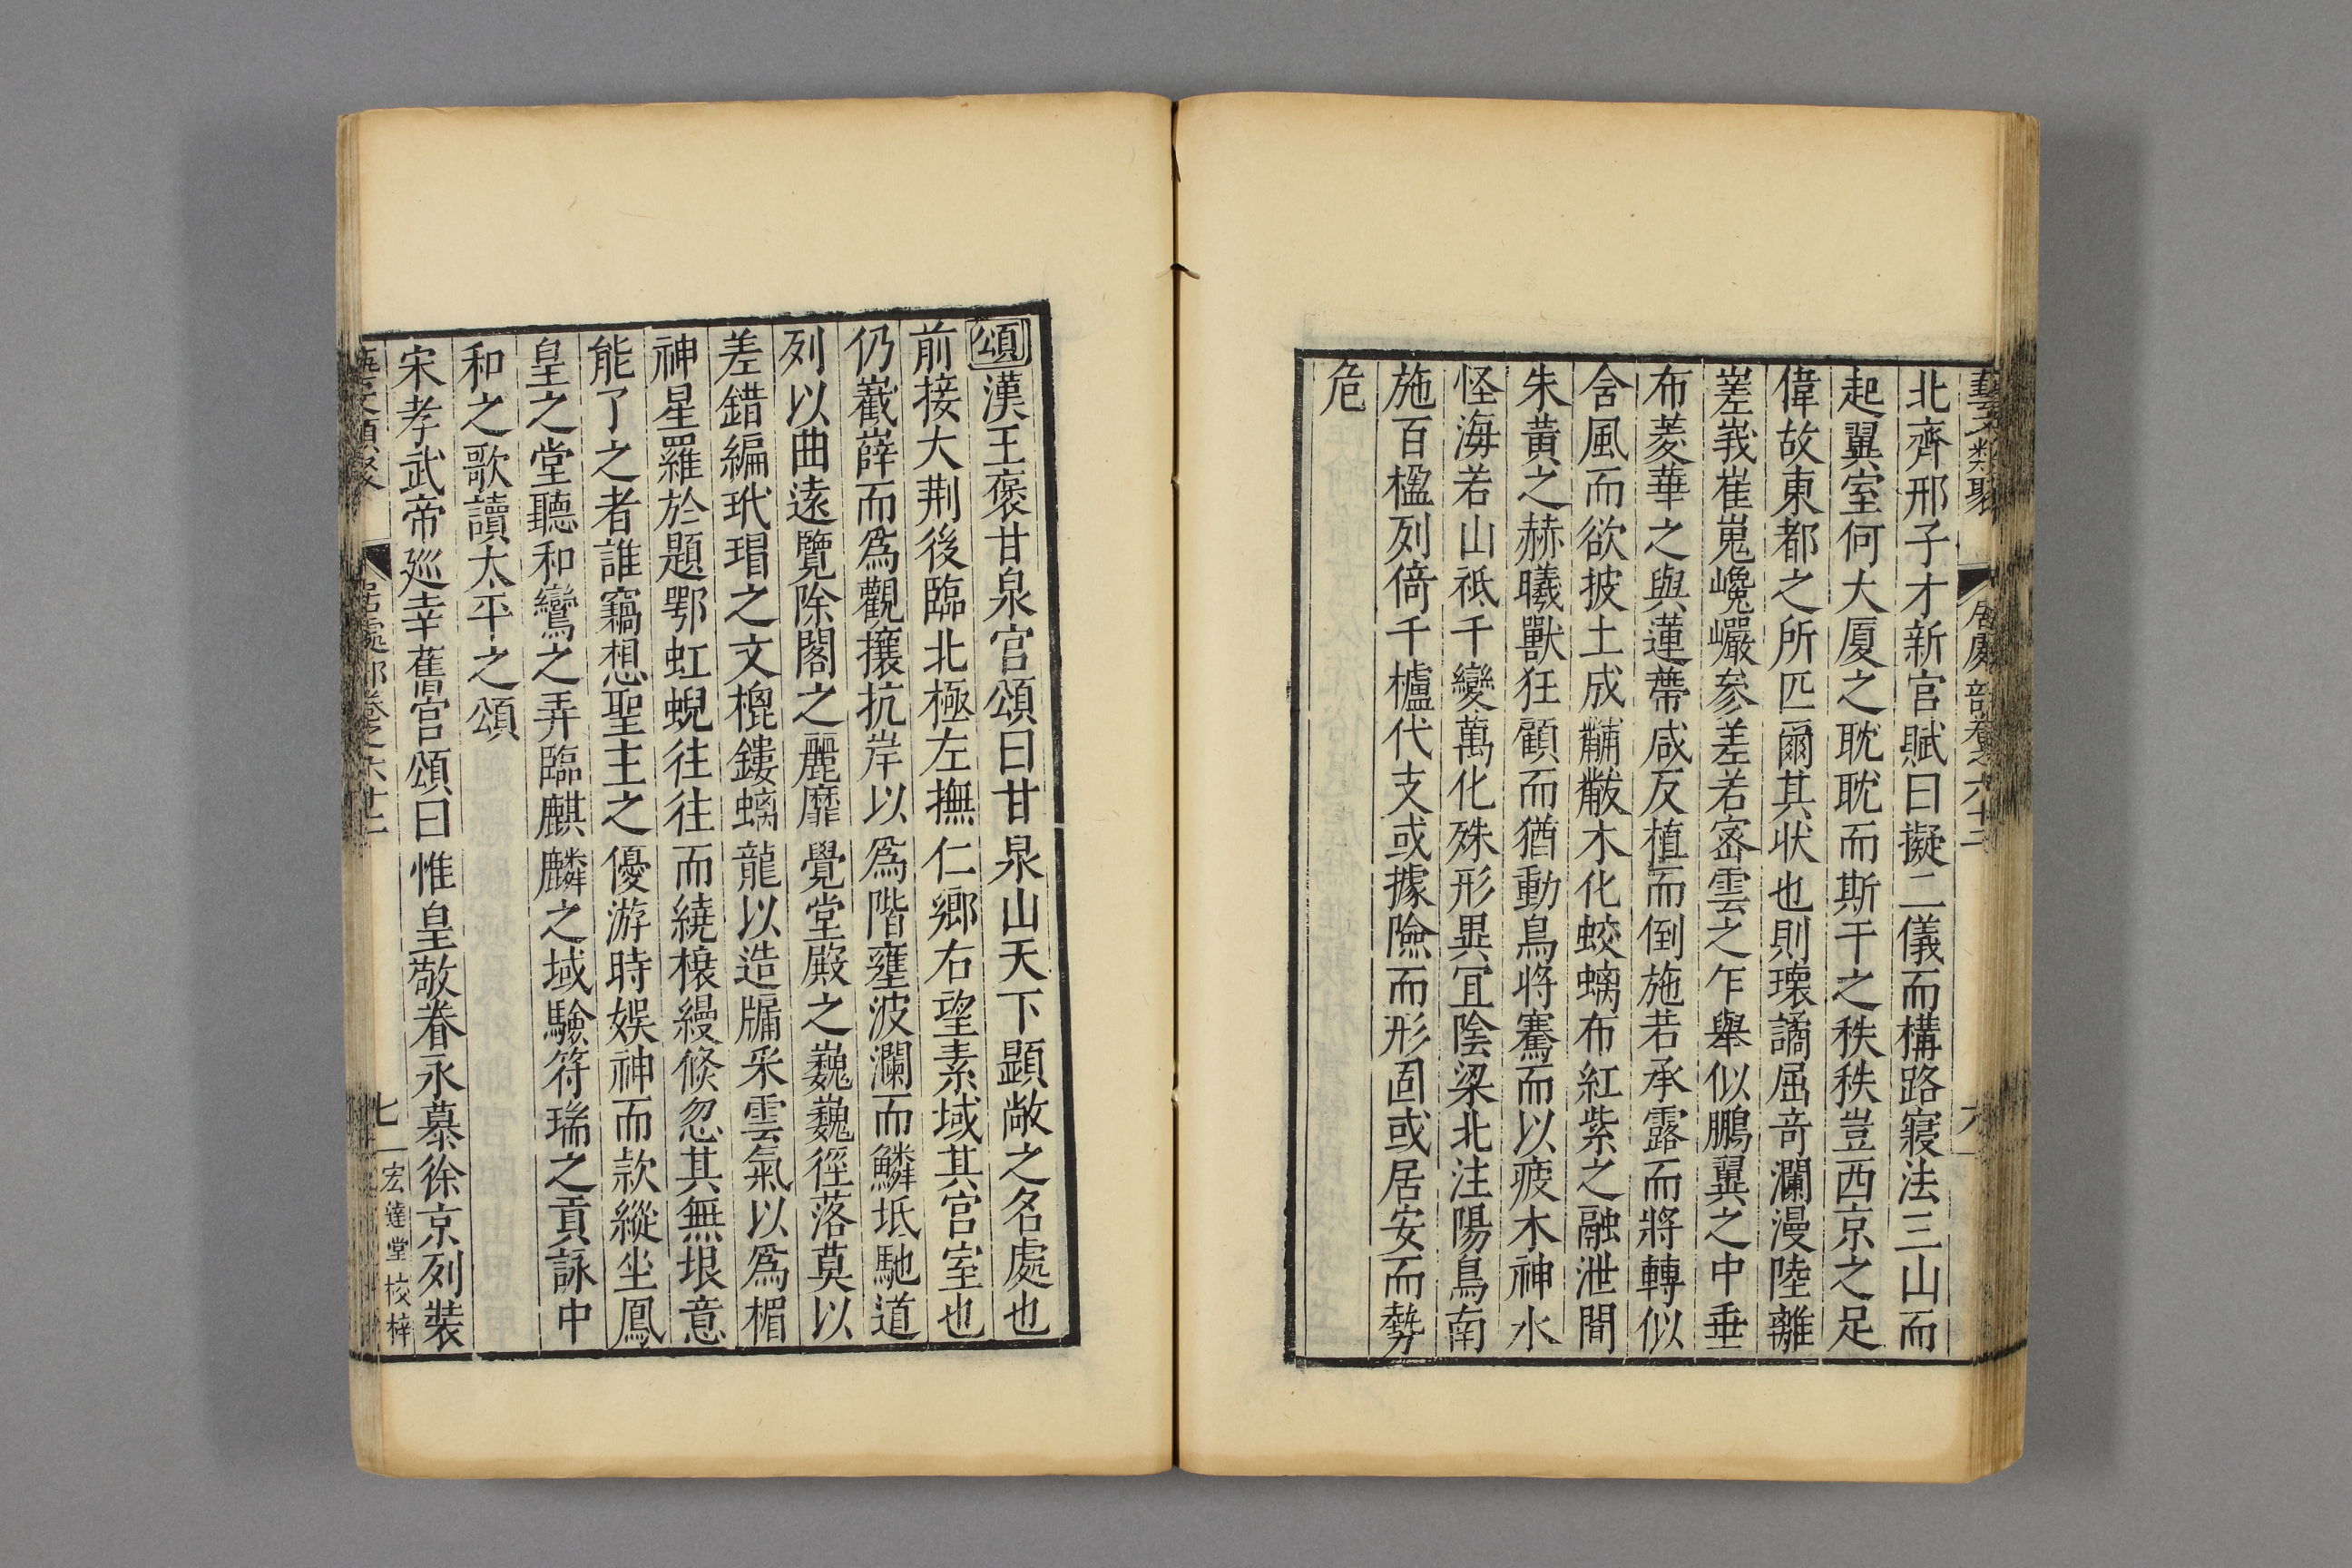 藝文類聚 居處部卷之六十二 六
北齊邢子才新宮賦曰擬二儀而構路寢法三山而
起翼室何大厦之耽耽而斯干之秩秩豈西京之足
偉故東都之所匹爾其状也則瓌譎屈竒瀾漫陸離
嵳峩崔嵬巉巖參差若宻雲之乍舉似鵬翼之中垂
布菱華之與蓮蔕咸反植而倒施若承露而將轉似
含風而欲披土成黼黻木化蛟螭布紅紫之融泄間
朱黄之赫曦獸狂顧而猶動鳥將騫而以疲木神水
怪海若山祗千變萬化殊形異冝陰梁北注陽鳥南
施百楹列倚千櫨代支或據險而形固或居安而勢
危
頌漢王褒甘泉宮頌曰甘泉山天下顯敞之名處也
前接大荆後臨北極左撫仁鄉右望素域其宮室也
仍嶻嶭而爲觀攘抗岸以爲階壅波瀾而鱗坻馳道
列以曲遠覽除閣之麗靡覺堂殿之巍巍徑落莫以
差錯編玳瑁之文㮰鏤螭龍以造牖采雲氣以爲楣
神星羅於題鄂虹蜺往往而繞榱縵倏忽其無垠意
能了之者誰竊想聖主之優游時娛神而款縱坐鳳
皇之堂聽和鸞之弄臨麒麟之域驗符瑞之貢詠中
和之歌讀太平之頌
宋孝武帝巡幸舊宮頌曰惟皇敬眷永慕徐京列裝
居處部卷之六十二 七 宏達堂校梓